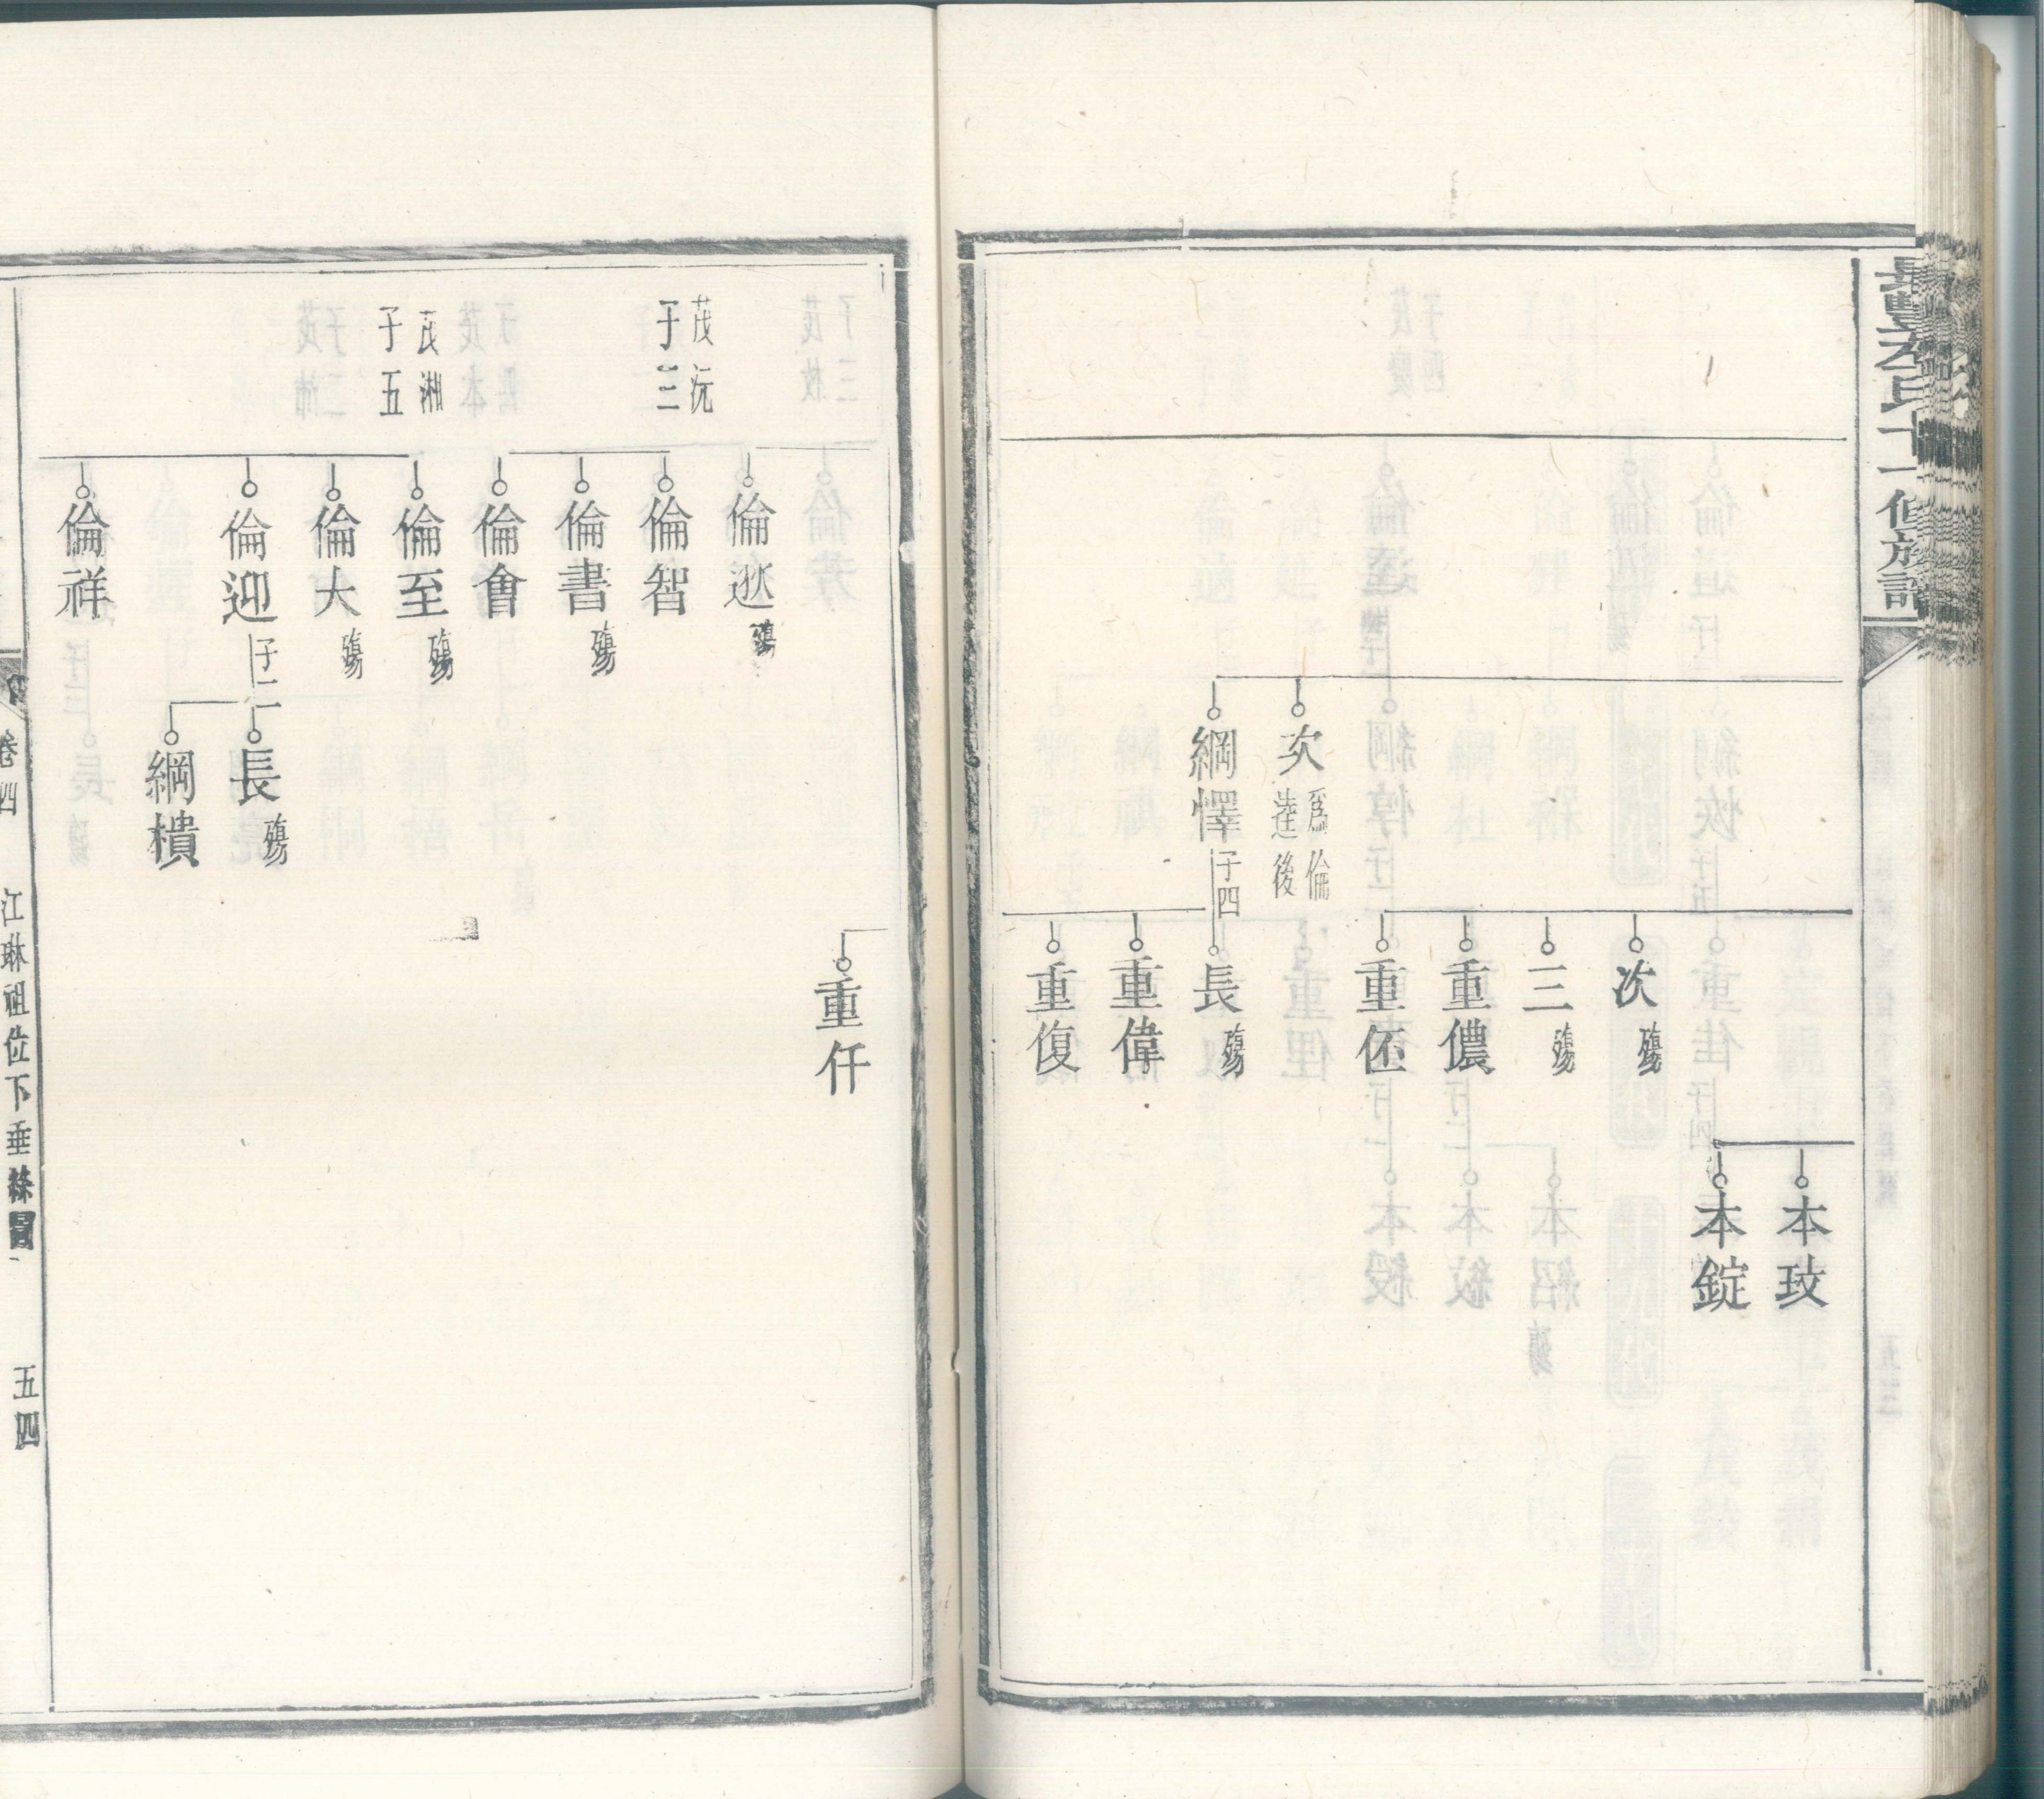 氏十一修族譜
本玫
本錠
次 殤
三 殤
重儂
重伾
次 爲倫
逹後
綱懌 子四
長 殤
重偉
重復
重仟
倫逖 殤
茂沅
子三
倫智
倫書 殤
倫會
茂洲
子五
倫至 殤
倫大 殤
倫迎 子二
長 殤
綱樻
倫祥
卷四 江琳祖位下垂絲圖 五四